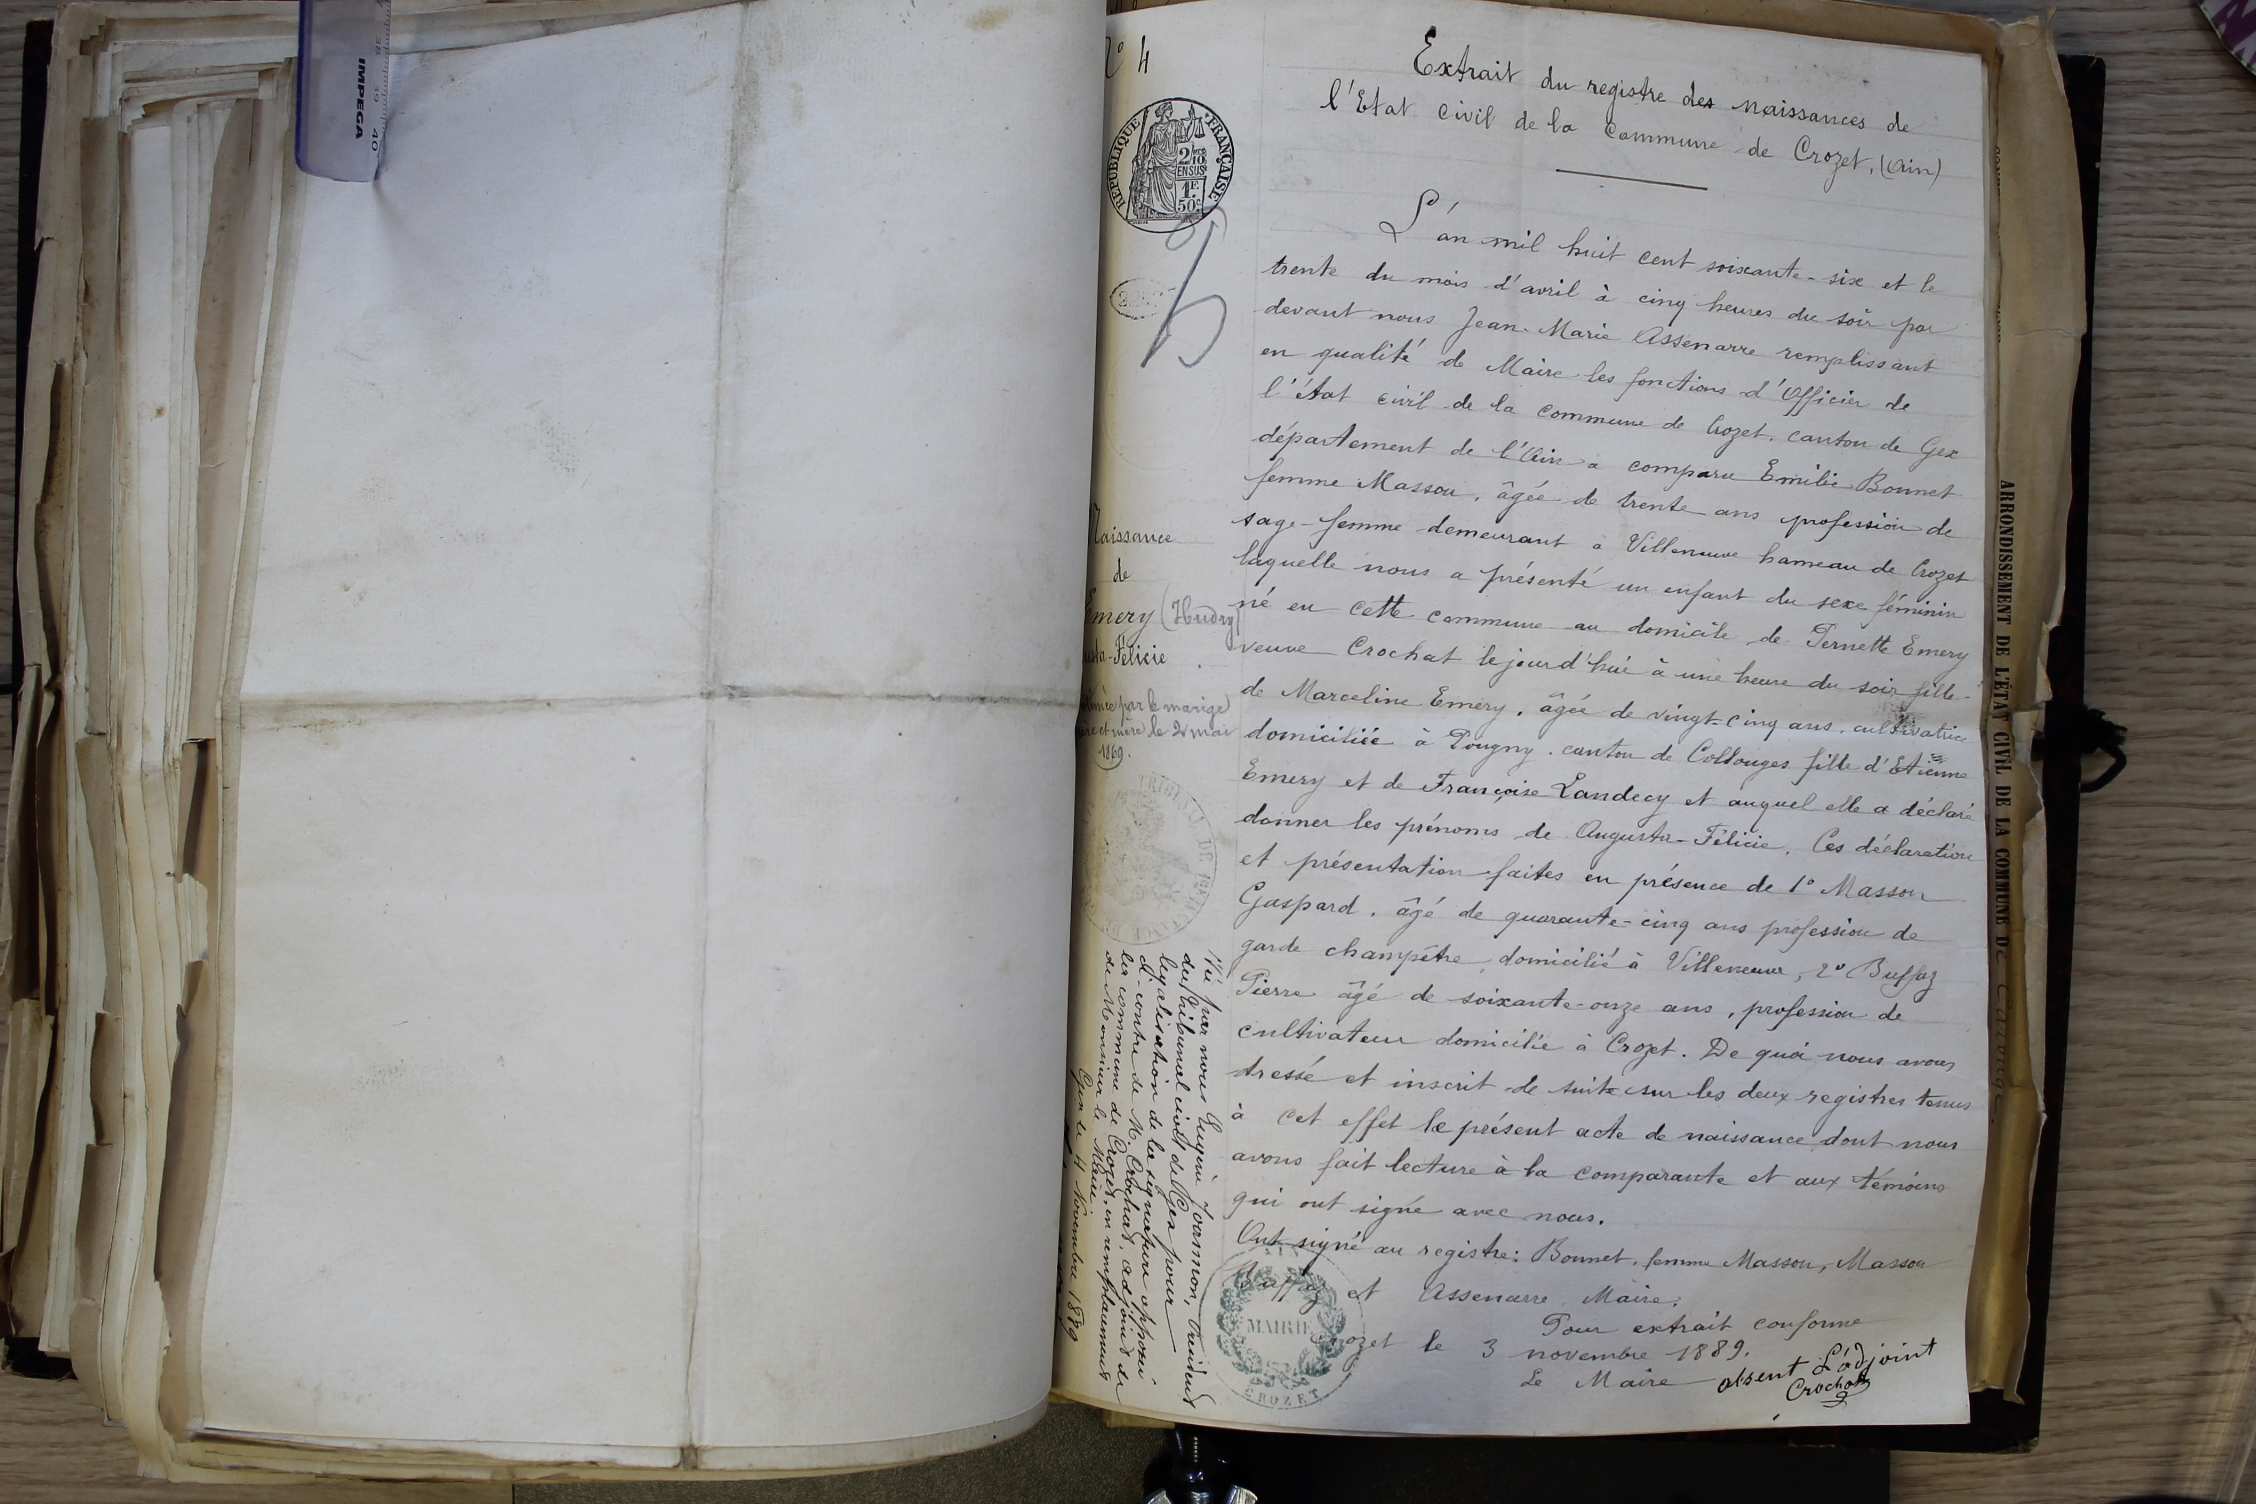 IMPEGA
39
40
N° 4
RÉPUBLIQUE FRANÇAISE
2/10
EN SUS
1F.
50c
Extrait du registre des naissances de
l'Etat civil de la Commune de Crozet, (Ain)
L'an mil huit cent soixante-six et le
trente du mois d'avril à cinq heures du soir par
devant nous Jean-Marie Assenarre remplissant
en qualité de Maire les fonctions d'Officier de
l'état civil de la commune de Crozet, canton de Gex
département de l'Ain a comparu Emilie Bonnet
femme Masson, âgée de trente ans profession de
sage-femme demeurant à Villeneuve hameau de Crozet
laquelle nous a présenté un enfant du sexe féminin
né en cette commune au domicile de Pernette Emery
veuve Crochat le jourd'hui à une heure du soir fille
de Marceline Emery, âgée de vingt-cinq ans, cultivatrice
domiciliée à Pougny, canton de Collonges fille d'Etienne
Emery et de Françoise Landecy et auquel elle a déclaré
donner les prénoms de Augusta-Félicie. Ces déclaration
et présentation faites en présence de 1° Masson
Gaspard, âgé de quarante-cinq ans profession de
garde champêtre, domicilié à Villeneuve, 2° Buffaz
Pierre âgé de soixante-onze ans, profession de
cultivateur domicilié à Crozet. De quoi nous avons
dressé et inscrit de suite sur les deux registres tenus
à cet effet le présent acte de naissance dont nous
avons fait lecture à la comparante et aux témoins
qui ont signé avec nous.
Ont signé au registre: Bonnet, femme Masson, Masson
Buffaz et Assenarre Maire.
Pour extrait conforme
Crozet le 3 novembre 1889.
Le Maire absent L'adjoint
Crochat
MAIRIE
CROZET
AIN
Naissance
de
Emery (Hudry)
Félicie
par le mariage
et mère le 2 mai
1869.
Vu par nous Joannon, Président
du tribunal civil de Gex pour
légalisation de la signature apposée
ci-contre de M. Crochat, adjoint de
la commune de Crozet, en remplacement
de Monsieur le Maire.
Gex le 4 Novembre 1889
ARRONDISSEMENT DE L'ÉTAT CIVIL DE LA COMMUNE DE Carouge